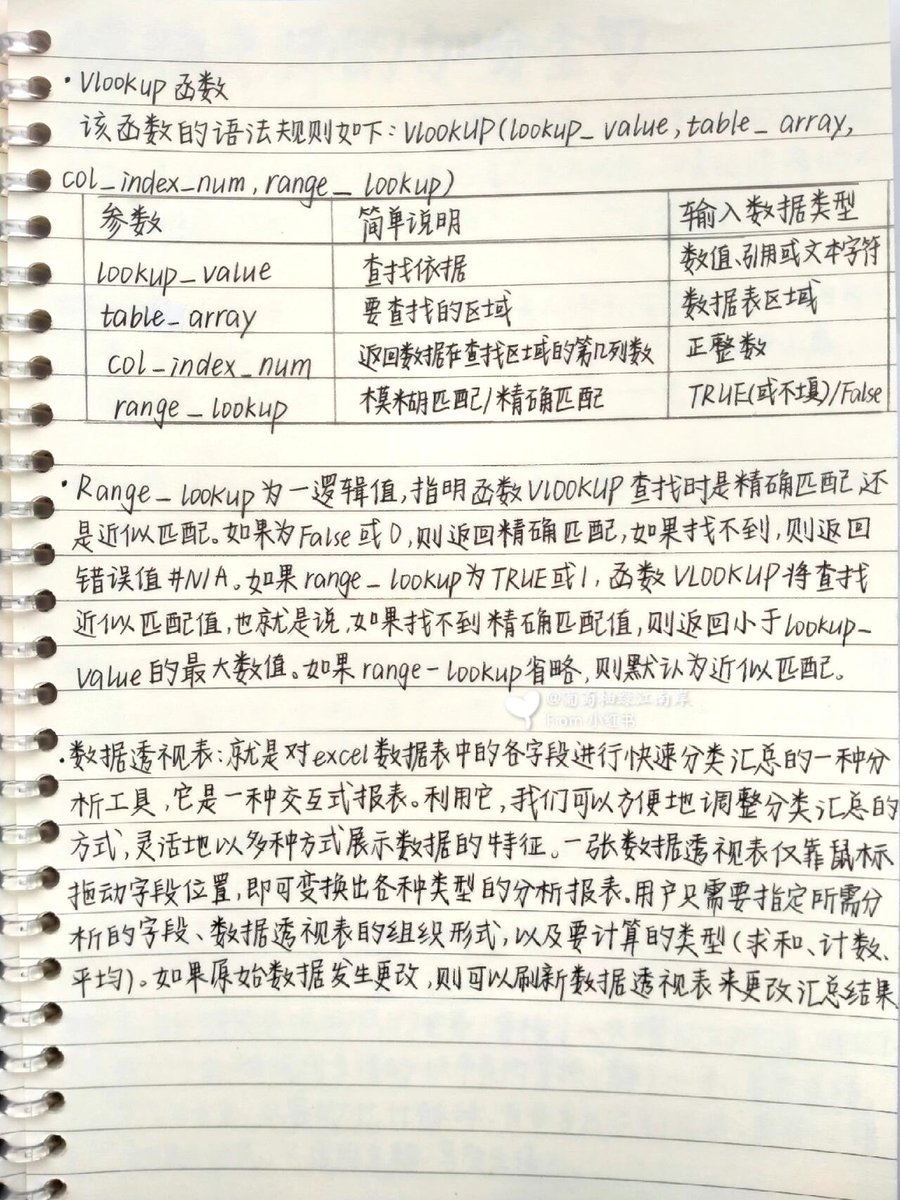 ·Vlookup函数
该函数的语法规则如下：VlOOKUP(lookup_value,table_array,
col_index_num,range_lookup)
参数 简单说明 输入数据类型
lookup_value 查找依据 数值、引用或文本字符
table_array 要查找的区域 数据表区域
col_index_num 返回数据在查找区域的第几列数 正整数
range_lookup 模糊匹配/精确匹配 TRUE(或不填)/False
·Range_lookup为一逻辑值,指明函数VLOOKUP查找时是精确匹配,还
是近似匹配。如果为False或0,则返回精确匹配,如果找不到,则返回
错误值#N/A。如果range_lookup为TRUE或1,函数VLOOKUP将查找
近似匹配值,也就是说,如果找不到精确匹配值,则返回小于lookup_
value的最大数值。如果range-lookup省略,则默认为近似匹配。
@葡萄柚绿江南岸
from 小红书
·数据透视表:就是对excel数据表中的各字段进行快速分类汇总的一种分
析工具,它是一种交互式报表。利用它,我们可以方便地调整分类汇总的
方式,灵活地以多种方式展示数据的特征。一张数据透视表仅靠鼠标
拖动字段位置,即可变换出各种类型的分析报表.用户只需要指定所需分
析的字段、数据透视表的组织形式,以及要计算的类型(求和、计数、
平均)。如果原始数据发生更改,则可以刷新数据透视表来更改汇总结果